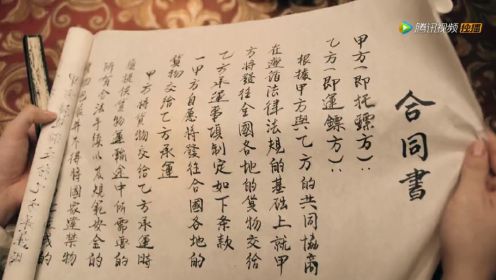 腾讯视频 独播
合同書
甲方(即托鏢方):
乙方(即運鏢方):
根據甲方與乙方的共同協商
在遵循法律法規的基礎上就甲
方將發往全國各地的貨物交給
乙方承運事項制定如下條款
一甲方自愿將發往全國各地的
貨物交給乙方承運
甲方將貨物交給乙方承運時
應提供貨物運輸途中所需要的
所有合法手續以及規範安全的
并不得將國家違禁物